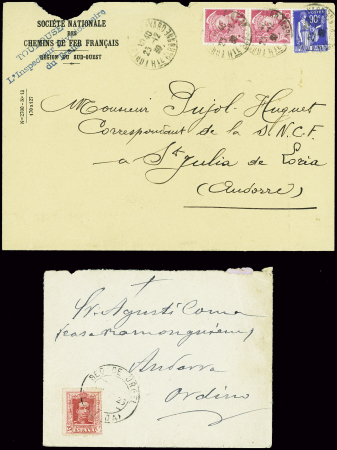 SOCIÉTÉ NATIONALE
DES
CHEMINS DE FER FRANÇAIS
RÉGION DU SUD-OUEST
TOULOUSE
L'Inspecteur
du
90c
Monsieur Pujol-Huguet
Correspondant de la S.N.C.F.
a St Julia de Loria
(Andorre)
Sr. Agustí Coma
(casa ramonguiem)
Andorra
Ordino
SEO DE URGEL
ESPAÑA